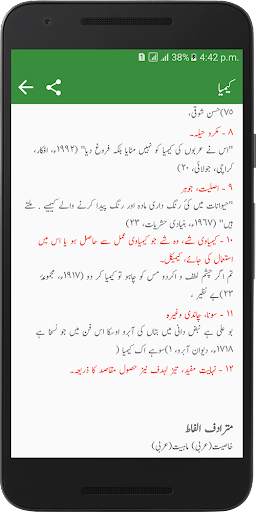 38% 4:42 p.m.
کیمیا
۷۵)حسن شوقی،
۸ - مکرو حیلہ۔
"اس نے عربوں کی کیمیا کو نہیں مٹایا بلکہ فروغ دیا" (۱۹۹۲ء، افکار،
کراچی، جولائی، ۲۰)
۹ - اصلیت، جوہر
"حیوانات میں کئی رنگ داری مادہ اور رنگ پیدا کرنے والے کیمیے . ملتے
ہیں" (۱۹۶۷ء، بنیادی حشریات، ۲۳)
۱۰ - کیمیاوی شے، وہ شے جو کیمیاوی عمل سے حاصل ہو یا اس میں
استعمال کی جائے، کیمیکل۔
تم اگر چشم لطف و اکردو مس کو چاہو تو کیمیا کر دو (۱۹۱۷ء، مجموعۂ
بے نظیر، ۲۳)
۱۱ - سونا، چاندی وغیرہ
بو علی ہے نبض دانی میں بتاں کی آبرو اوسکا اس فن میں جو نسخا ہے
سوہے اک کیمیا (۱۷۱۸ء، دیوان آبرو، ۱)
۱۲ - نہایت مفید، تیز بہدف نیز حصول مقاصد کا ذریعہ۔
مترادف الفاظ
خاصیت(عربی) ماہیت(عربی)